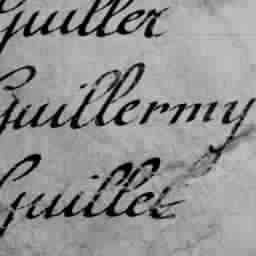 Guiller
Guillermy
Guillet